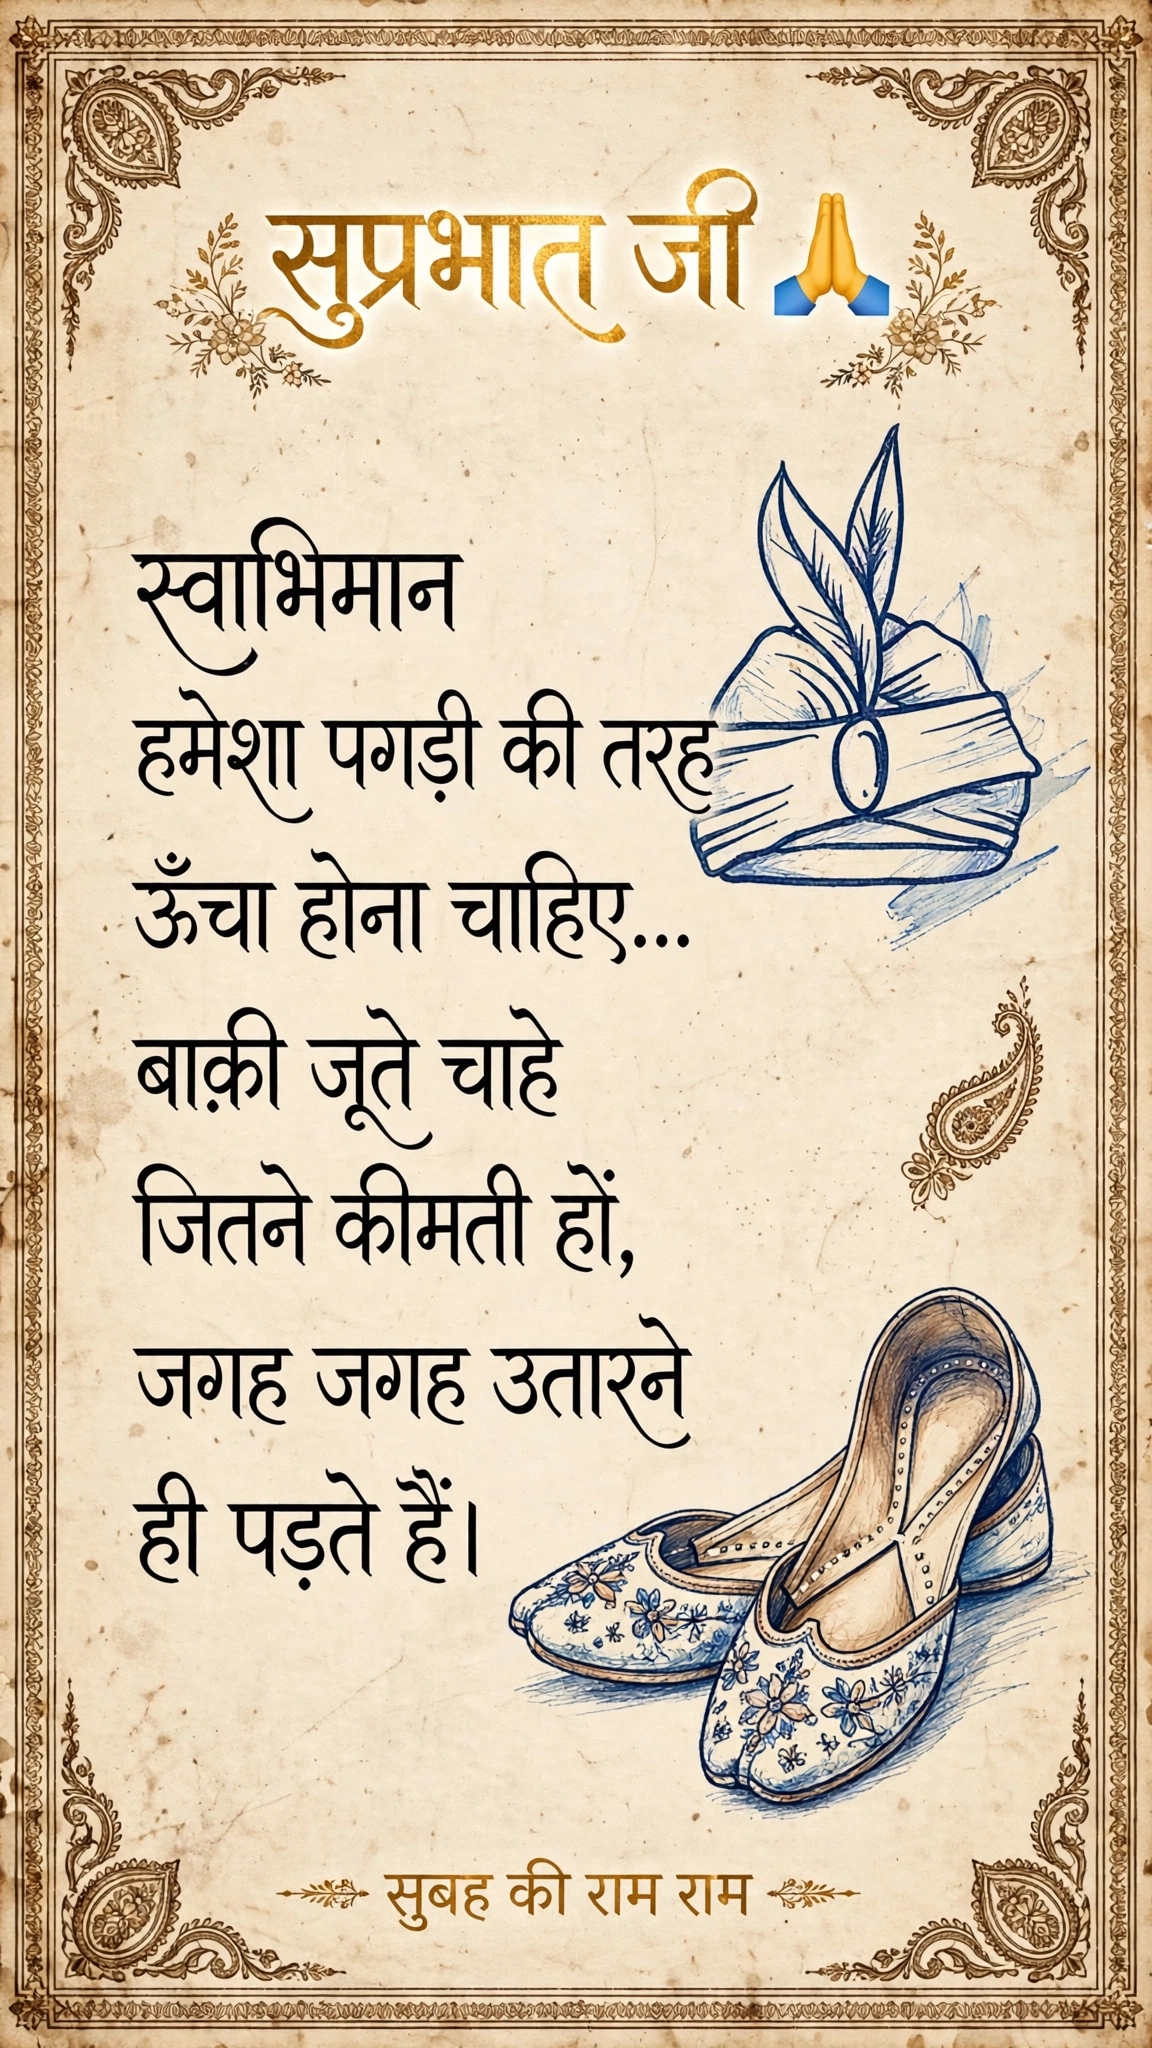 सुप्रभात जी 🙏
स्वाभिमान
हमेशा पगड़ी की तरह
ऊँचा होना चाहिए...
बाक़ी जूते चाहे
जितने कीमती हों,
जगह जगह उतारने
ही पड़ते हैं।
सुबह की राम राम